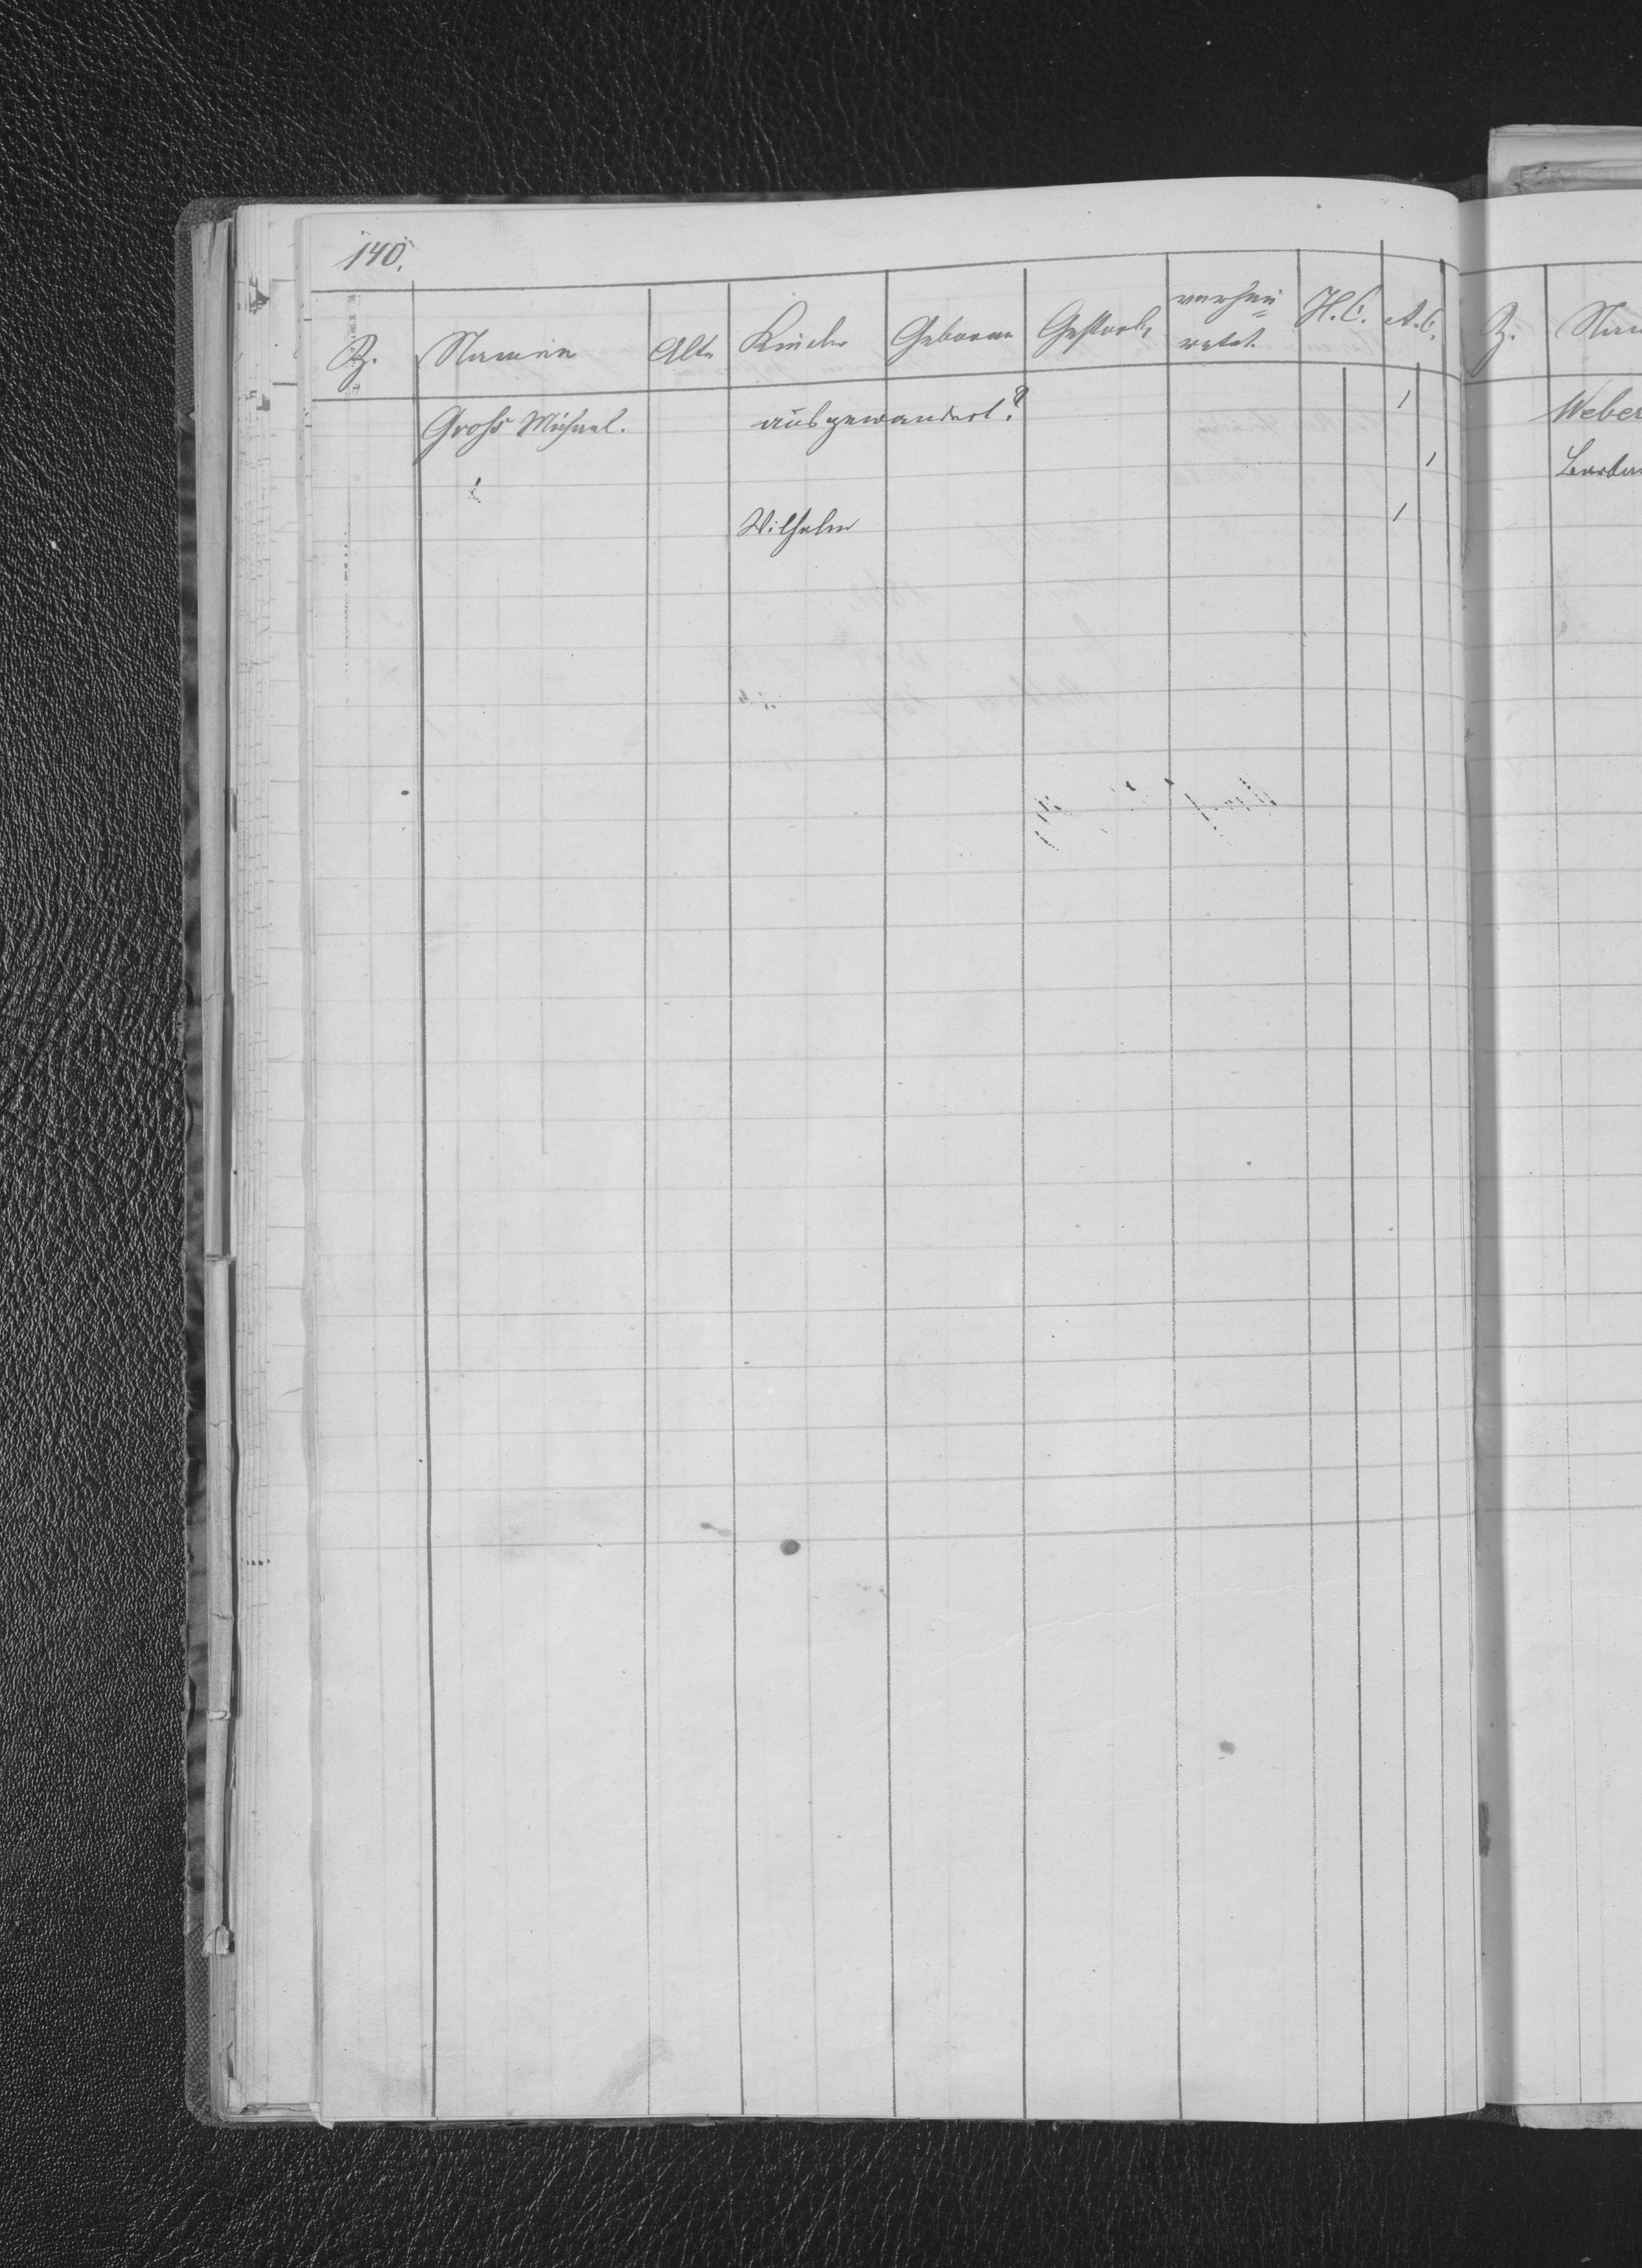 140.
Z. Namen Alte Kinder Geboren Gestorb. verhei=
ratet. H.C. A.C.
Groß Michael. ausgewandert? 1
1
Wilhelm 1
Z.
Weber